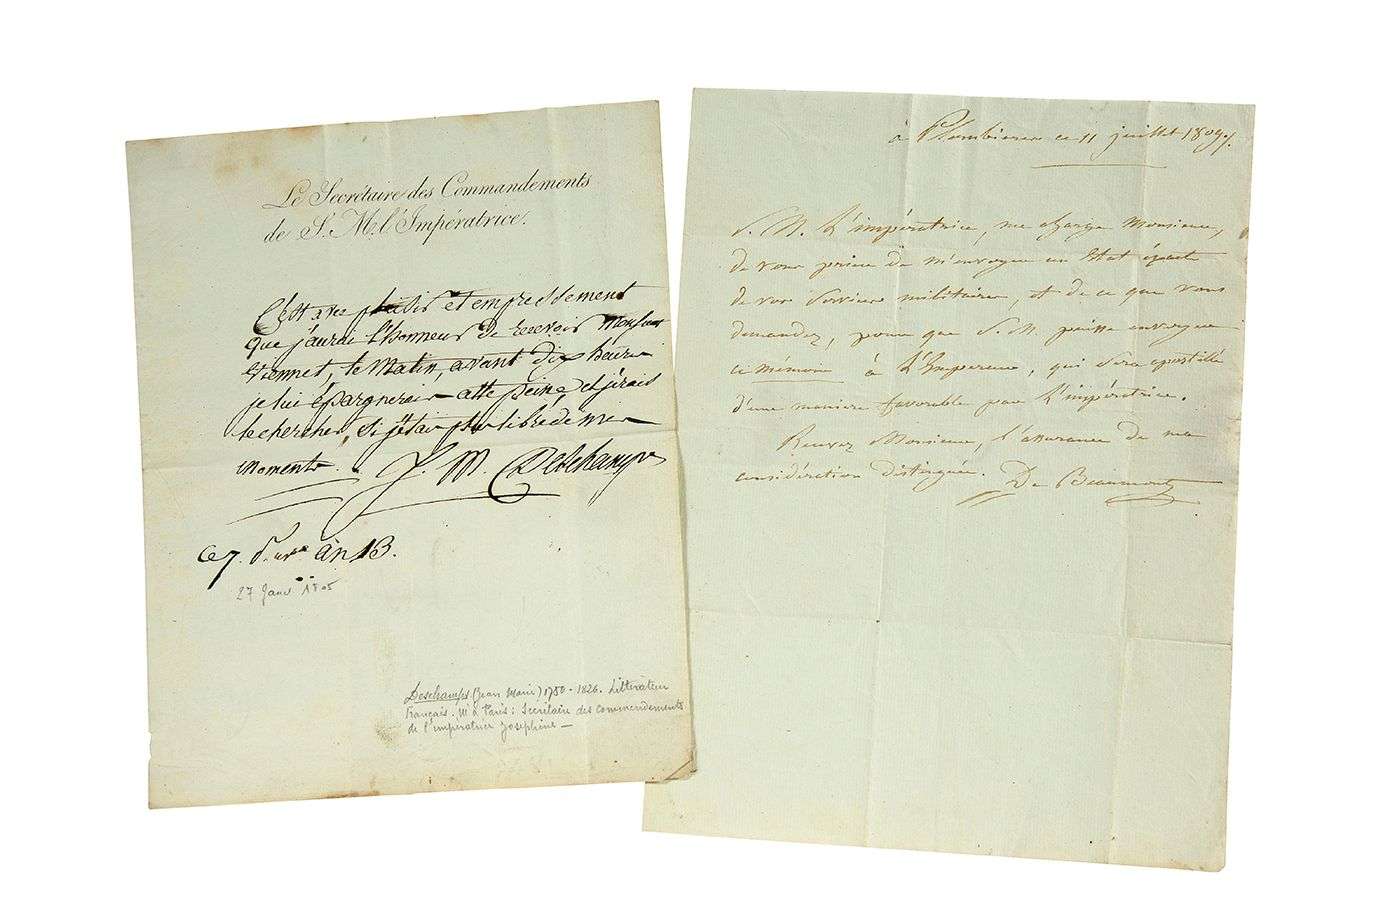 Le Secrétaire des Commandements
de S. M. l'Impératrice.
C'est avec plaisir et empressement
que j'aurai l'honneur de recevoir Monsieur
Viennet, le Matin, avant dix heures
je lui épargnerais cette peine, et j'irais
le chercher, si j'étais plus libre de mes
moments.
J. M. Deschamps
Ce 7. an 13.
27 Janv 1805
Deschamps (Jean Marie) 1750 - 1826. Littérateur
Français. M. à Paris : Secrétaire des commendements
de l'impératrice Josephine —
à Plombieres ce 11 juillet 1809.
S. M. L'impératrice, me charge Monsieur,
de vous prier de m'envoyer un Etat éxact
de vos Services militaires, et de ce que vous
demandez, pour que S. M. puisse envoyer
ce mémoire à L'Empereur, qui sera apostillé
d'une maniere favorable par L'impératrice.
Recevez Monsieur, l'assurance de ma
considération distinguée. De Beaumont